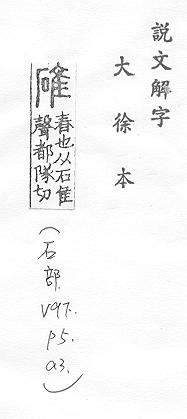 說文解字
大徐本
碓
舂也从石隹
聲都隊切
(石部
V97.
P5.
a3.)